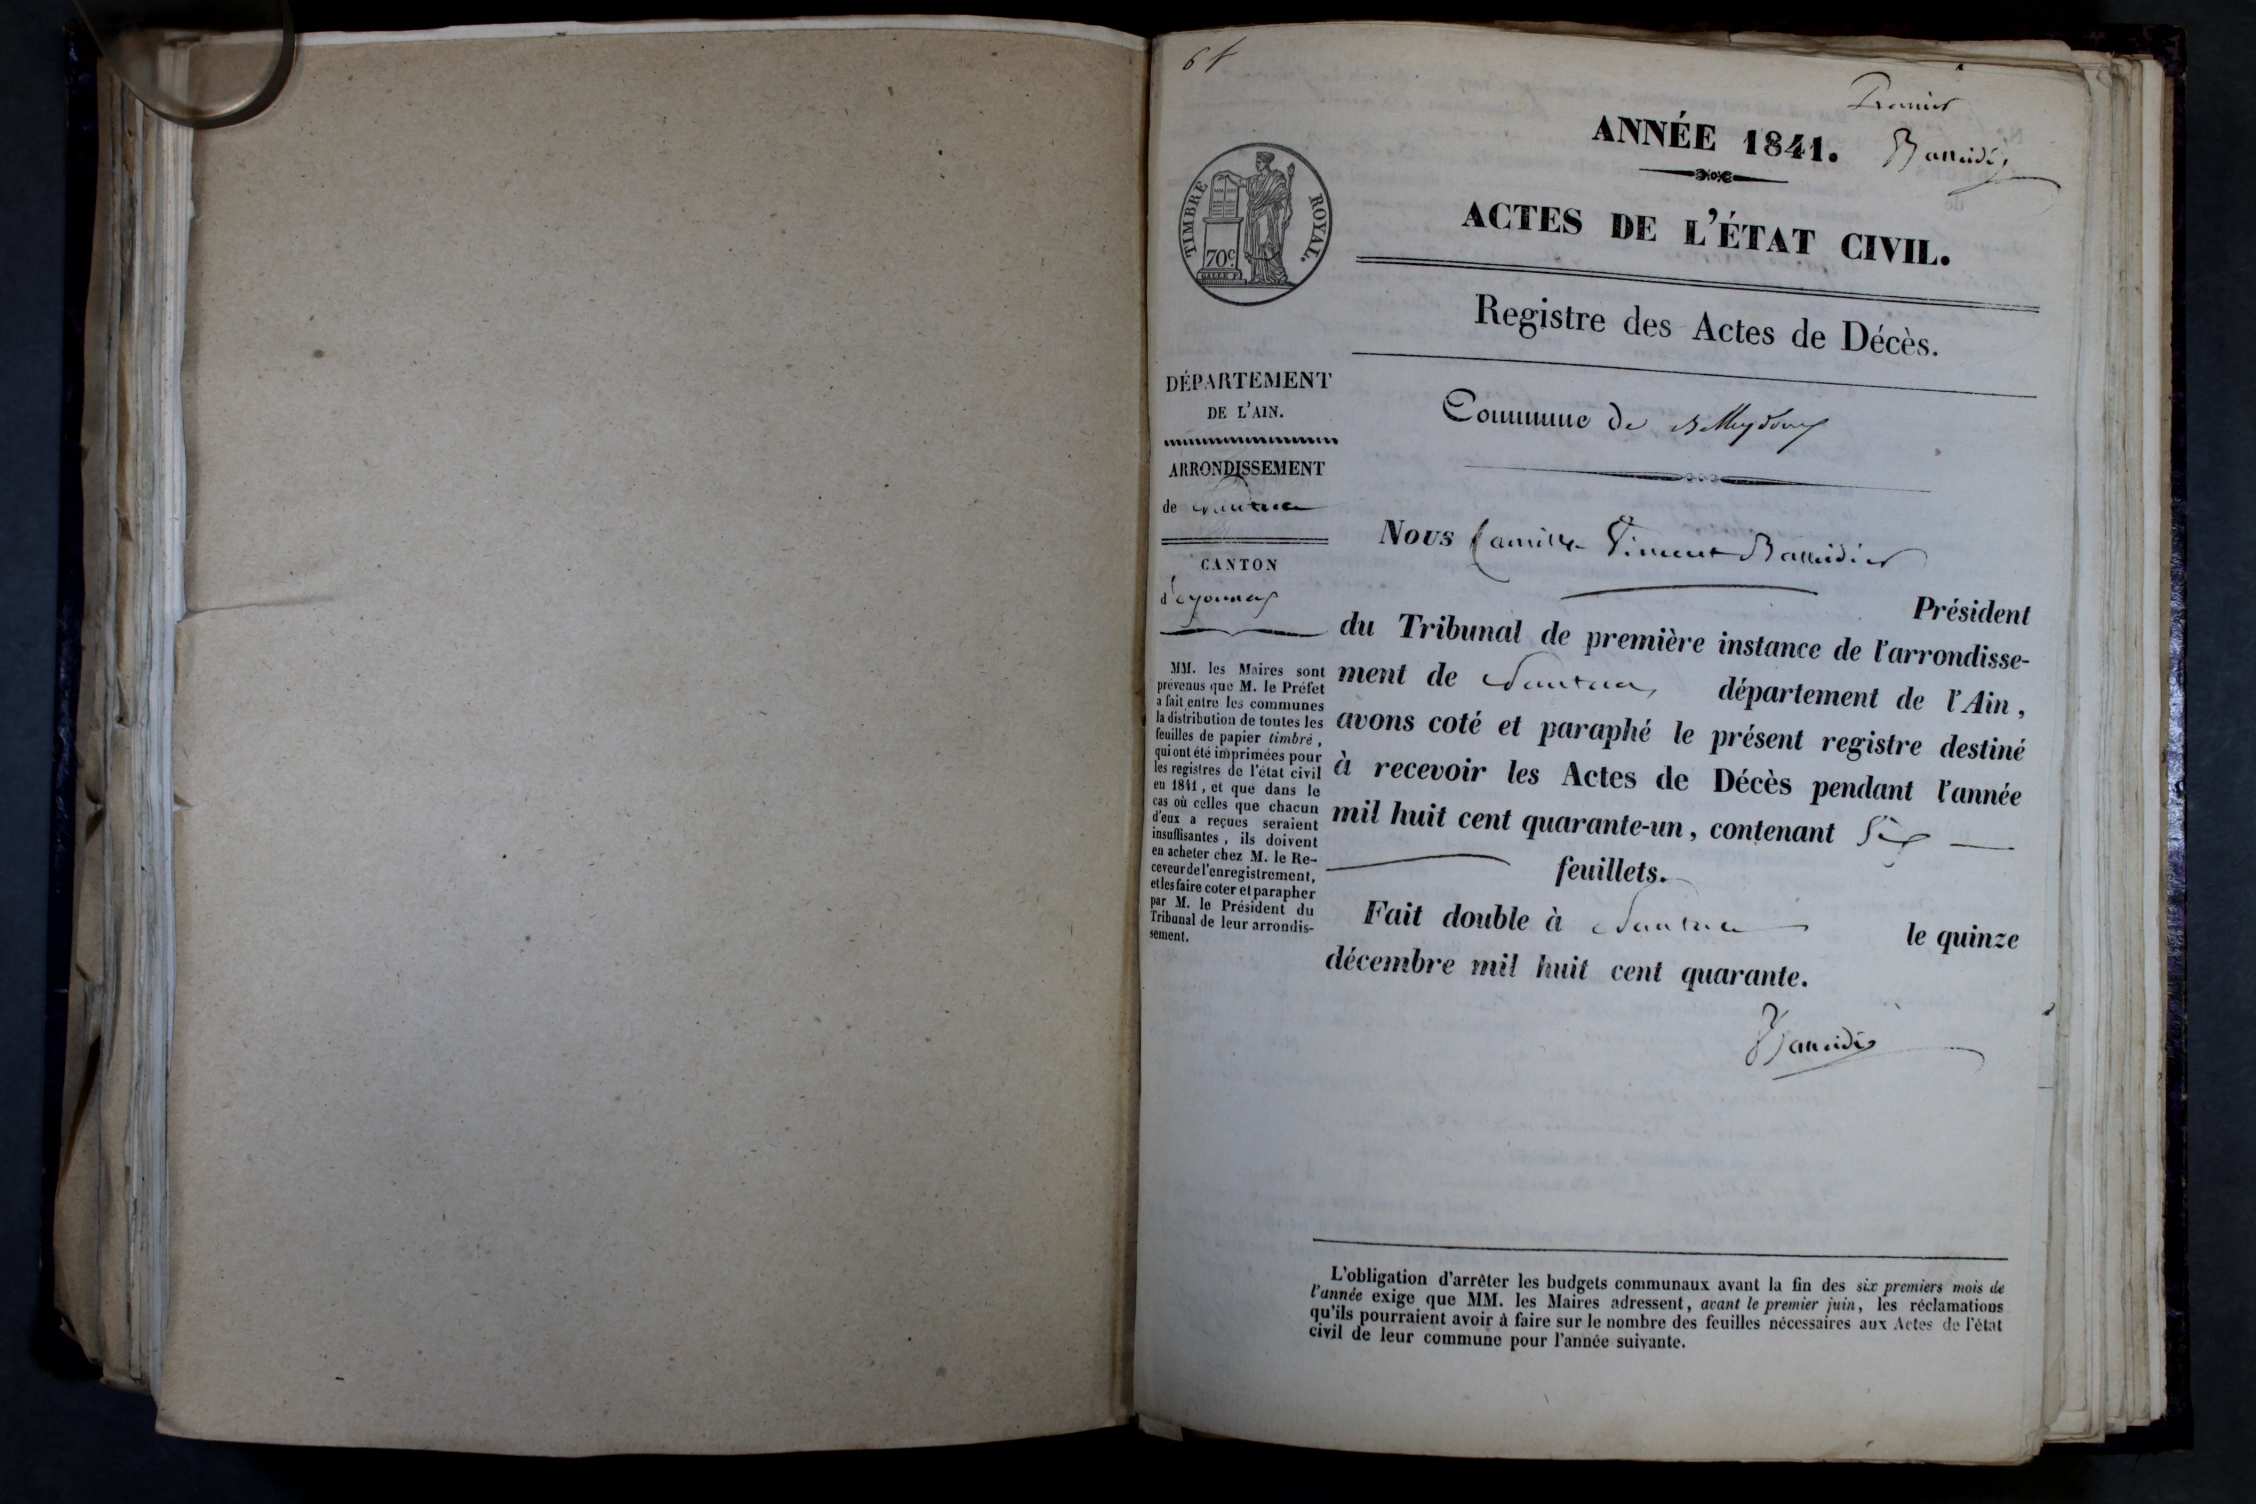 64
Premier
ANNÉE 1841.
TIMBRE ROYAL.
70c
ACTES DE L'ÉTAT CIVIL.
Registre des Actes de Décès.
DÉPARTEMENT
DE L'AIN.
ARRONDISSEMENT
de Nantua
CANTON
d'oyonnax
MM. les Maires sont
prévenus que M. le Préfet
a fait entre les communes
la distribution de toutes les
feuilles de papier timbré,
qui ont été imprimées pour
les registres de l'état civil
en 1841, et que dans le
cas où celles que chacun
d'eux a reçues seraient
insuffisantes, ils doivent
en acheter chez M. le Re-
ceveur de l'enregistrement,
et les faire coter et parapher
par M. le Président du
Tribunal de leur arrondis-
sement.
Commune de Belleydoux
Nous Camille Vincent
Président
du Tribunal de première instance de l'arrondisse-
ment de Nantua, département de l'Ain,
avons coté et paraphé le présent registre destiné
à recevoir les Actes de Décès pendant l'année
mil huit cent quarante-un, contenant Six
feuillets.
Fait double à Nantua le quinze
décembre mil huit cent quarante.
L'obligation d'arrêter les budgets communaux avant la fin des six premiers mois de
l'année exige que MM. les Maires adressent, avant le premier juin, les réclamations
qu'ils pourraient avoir à faire sur le nombre des feuilles nécessaires aux Actes de l'état
civil de leur commune pour l'année suivante.